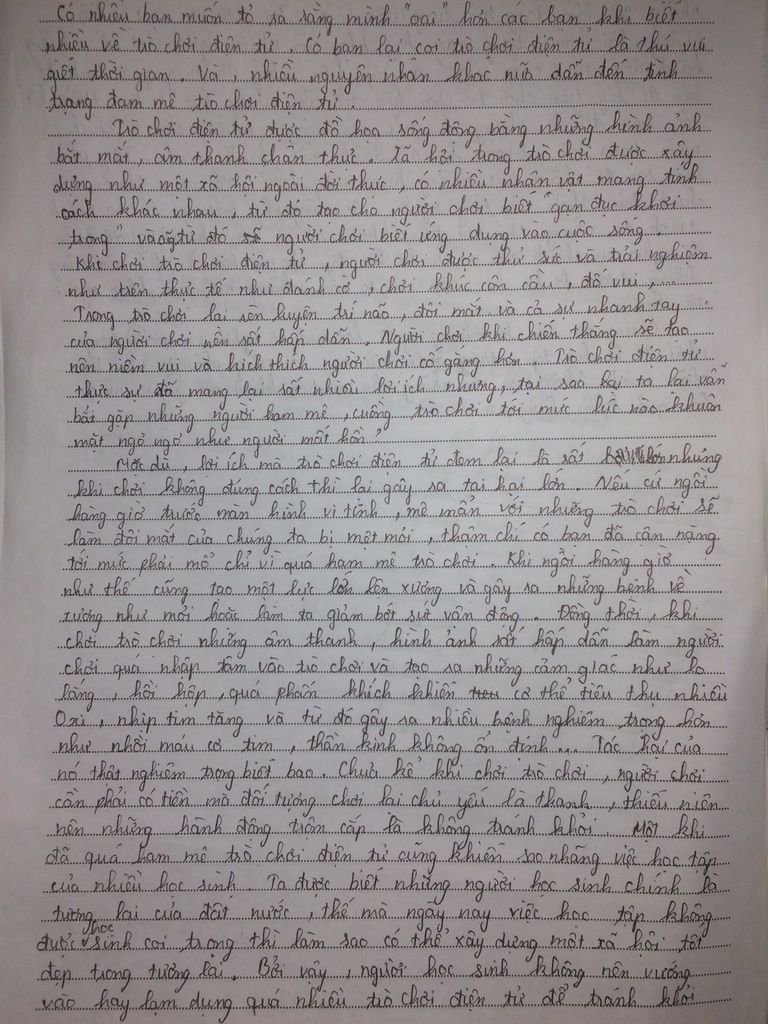 Có nhiều bạn muốn tỏ ra rằng mình "oai" hơn các bạn khi biết
nhiều về trò chơi điện tử. Có bạn lại coi trò chơi điện tử là thú vui
giết thời gian. Và, nhiều nguyên nhân khác nữa dẫn đến tình
trạng đam mê trò chơi điện tử.
Trò chơi điện tử được đồ họa sống động bằng những hình ảnh
bắt mắt, âm thanh chân thực. Xã hội trong trò chơi được xây
dựng như một xã hội ngoài đời thực, có nhiều nhân vật mang tính
cách khác nhau, từ đó tạo cho người chơi biết "gạn đục khơi
trong" và từ đó sẽ người chơi biết ứng dụng vào cuộc sống.
Khi chơi trò chơi điện tử, người chơi được thử sức và trải nghiệm
như trên thực tế như đánh cờ, chơi khúc côn cầu, đố vui,...
Trong trò chơi lại rèn luyện trí não, đôi mắt và cả sự nhanh tay
của người chơi nên rất hấp dẫn. Người chơi khi chiến thắng sẽ tạo
nên niềm vui và kích thích người chơi cố gắng hơn. Trò chơi điện tử
thực sự đã mang lại rất nhiều lợi ích nhưng, tại sao ta lại vẫn
bắt gặp những người ham mê, cuồng trò chơi tới mức lúc nào khuôn
mặt ngơ ngơ như người mất hồn?
Mặc dù, lợi ích mà trò chơi điện tử đem lại là rất lớn nhưng
khi chơi không đúng cách thì lại gây ra tai hại lớn. Nếu cứ ngồi
hàng giờ trước màn hình vi tính, mê mẩn với những trò chơi sẽ
làm đôi mắt của chúng ta bị mệt mỏi, thậm chí có bạn đã cận nặng
tới mức phải mổ chỉ vì quá ham mê trò chơi. Khi ngồi hàng giờ
như thế cũng tạo một lực lớn lên xương và gây ra những bệnh về
xương như mỏi hoặc làm ta giảm bớt sức vận động. Đồng thời, khi
chơi trò chơi những âm thanh, hình ảnh rất hấp dẫn làm người
chơi quá nhập tâm vào trò chơi và tạo ra những cảm giác như lo
lắng, hồi hộp, quá phấn khích khiến cơ thể tiêu thụ nhiều
Oxi, nhịp tim tăng và từ đó gây ra nhiều bệnh nghiêm trọng hơn
như nhồi máu cơ tim, thần kinh không ổn định... Tác hại của
nó thật nghiêm trọng biết bao. Chưa kể khi chơi trò chơi, người chơi
cần phải có tiền mà đối tượng chơi lại chủ yếu là thanh, thiếu niên
nên những hành động trộm cắp là không tránh khỏi. Một khi
đã quá ham mê trò chơi điện tử cũng khiến sao nhãng việc học tập
của nhiều học sinh. Ta được biết những người học sinh chính là
tương lai của đất nước, thế mà ngày nay việc học tập không
được học sinh coi trọng thì làm sao có thể xây dựng một xã hội tốt
đẹp trong tương lai. Bởi vậy, người học sinh không nên vướng
vào hay lạm dụng quá nhiều trò chơi điện tử để tránh khỏi